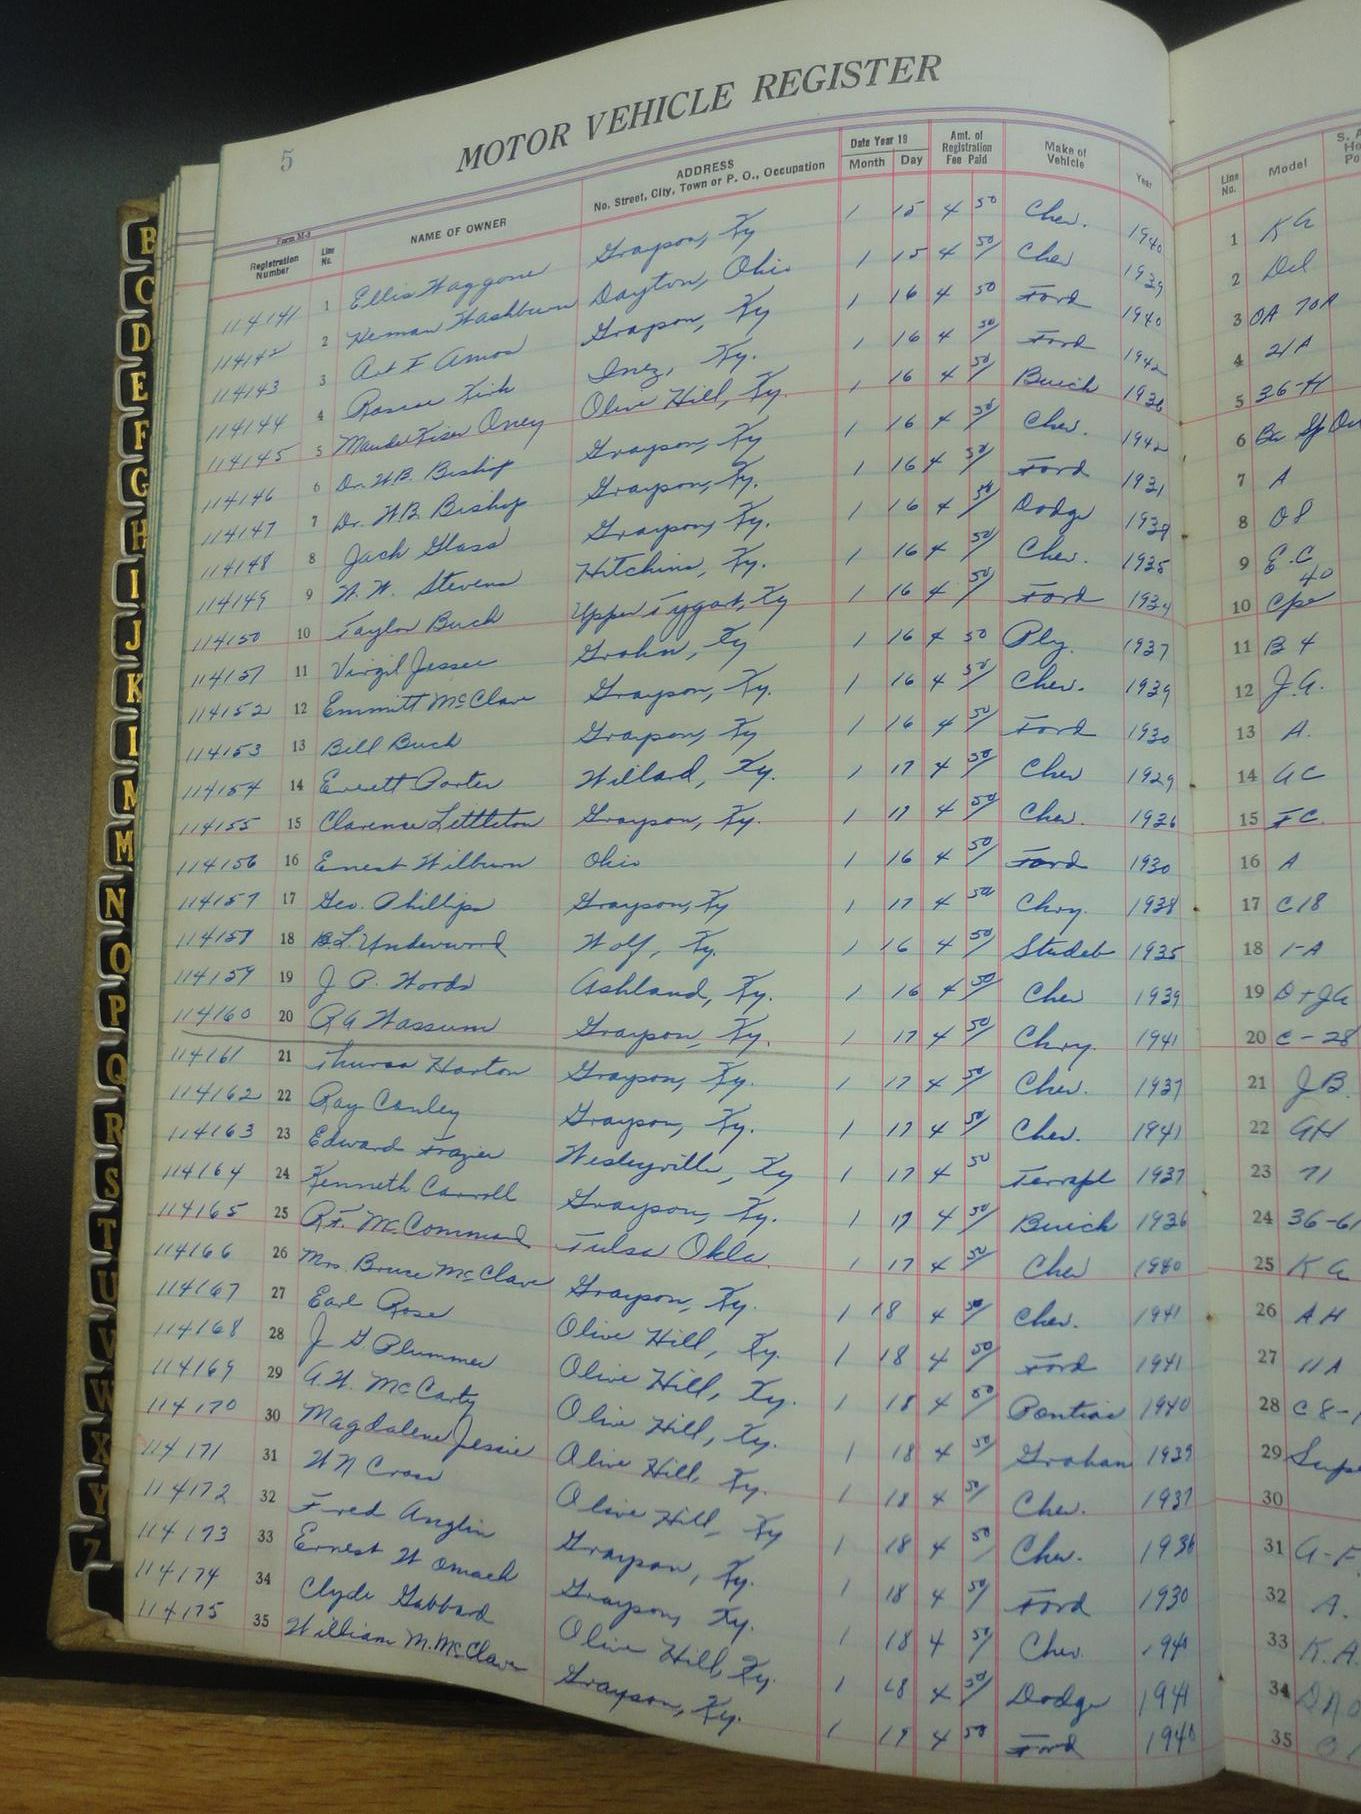 5
MOTOR VEHICLE REGISTER
Form M-3
Registration Number Line No. NAME OF OWNER ADDRESS No. Street, City, Town or P. O., Occupation Date Year 19 Month Day Amt. of Registration Fee Paid Make of Vehicle Year Line No. Model
114141 1 Ellis Waggoner Grayson, Ky 1 15 4 50 Chev. 1940 1 KA
114142 2 Heman Washburn Dayton, Ohio 1 15 4 50 Chev 1939 2 Del
114143 3 Art F Amos Grayson, Ky 1 16 4 50 Ford 1940 3 OA 70A
114144 4 Roscoe Kirk Inez, Ky. 1 16 4 50 Ford 1942 4 21A
114145 5 Maude Kiser Oney Olive Hill, Ky. 1 16 4 50 Buick 1936 5 36-H
114146 6 Dr. W.B. Bishop Grayson, Ky 1 16 4 50 Chev. 1942 6 Sp
114147 7 Dr. W.B. Bishop Grayson, Ky. 1 16 4 50 Ford 1931 7 A
114148 8 Jack Glass Grayson, Ky. 1 16 4 50 Dodge 1938 8 O8
114149 9 W. W. Stevens Hitchins, Ky. 1 16 4 50 Chev. 1935 9 E.C
114150 10 Taylor Buck Upper Tygart, Ky 1 16 4 50 Ford 10 Cpe 40
114151 11 Virgil Jessee Grahn, Ky 1 16 4 50 Ply. 1937 11 B 4
114152 12 Emmitt McClave Grayson, Ky. 1 16 4 50 Chev. 1939 12 J.A.
114153 13 Bill Buck Grayson, Ky 1 16 4 50 Ford 1930 13 A.
114154 14 Everett Porter Willad, Ky. 1 17 4 50 Chev 1929 14 AC
114155 15 Clarence Littleton Grayson, Ky. 1 17 4 50 Chev. 1936 15 FC.
114156 16 Ernest Wilburn Ohio 1 16 4 50 Ford 1930 16 A
114157 17 Geo. Phillips Grayson, Ky 1 17 4 50 Chry. 1938 17 C18
114158 18 B.L. Underwood Wolf, Ky. 1 16 4 50 Studeb 1935 18 1-A
114159 19 J. P. Woods Ashland, Ky. 1 16 4 50 Chev 1939 19 D+JA
114160 20 RA Wassum Grayson, Ky. 1 17 4 50 Chry. 1941 20 C-28
114161 21 Horton Grayson, Ky. 1 17 4 50 Chev. 1937 21 J B.
114162 22 Ray Conley Grayson, Ky. 1 17 4 50 Chev. 1941 22 AH
114163 23 Edward Frazier Wesleyville, Ky 1 17 4 50 Terrapl 1937 23 71
114164 24 Kenneth Carroll Grayson, Ky. 1 17 4 50 Buick 1936 24 36-61
114165 25 R.F. McCommand Tulsa Okla. 1 17 4 50 Chev 1940 25 KA
114166 26 Mrs. Bruce McClave Grayson, Ky. 1 18 4 50 Chev. 1941 26 AH
114167 27 Earl Rose Olive Hill, Ky. 1 18 4 50 Ford 1941 27 11A
114168 28 J G Plummer Olive Hill, Ky. 1 18 4 50 Pontiac 1940 28 C8-
114169 29 A.W. McCarty Olive Hill, Ky. 1 18 4 50 Graham 1939 29 Supe
114170 30 Magdalene Jessie Olive Hill, Ky. 1 18 4 50 Chev. 1937 30
114171 31 W N Cross Olive Hill, Ky 1 18 4 50 Chev. 1936 31 A-F.
114172 32 Fred Anglin Grayson, Ky. 1 18 4 50 Ford 1930 32 A.
114173 33 Ernest W Omach Grayson, Ky. 1 18 4 50 Chev 1940 33 K.A.
114174 34 Clyde Gabbard Olive Hill, Ky. 1 18 4 50 Dodge 1941 34
114175 35 William M. McClave Grayson, Ky. 1 19 4 50 Ford 1940 35
B
C
D
E
F
G
H
I
J
K
M
N
O
P
Q
R
S
T
U
V
W
X
Y
Z